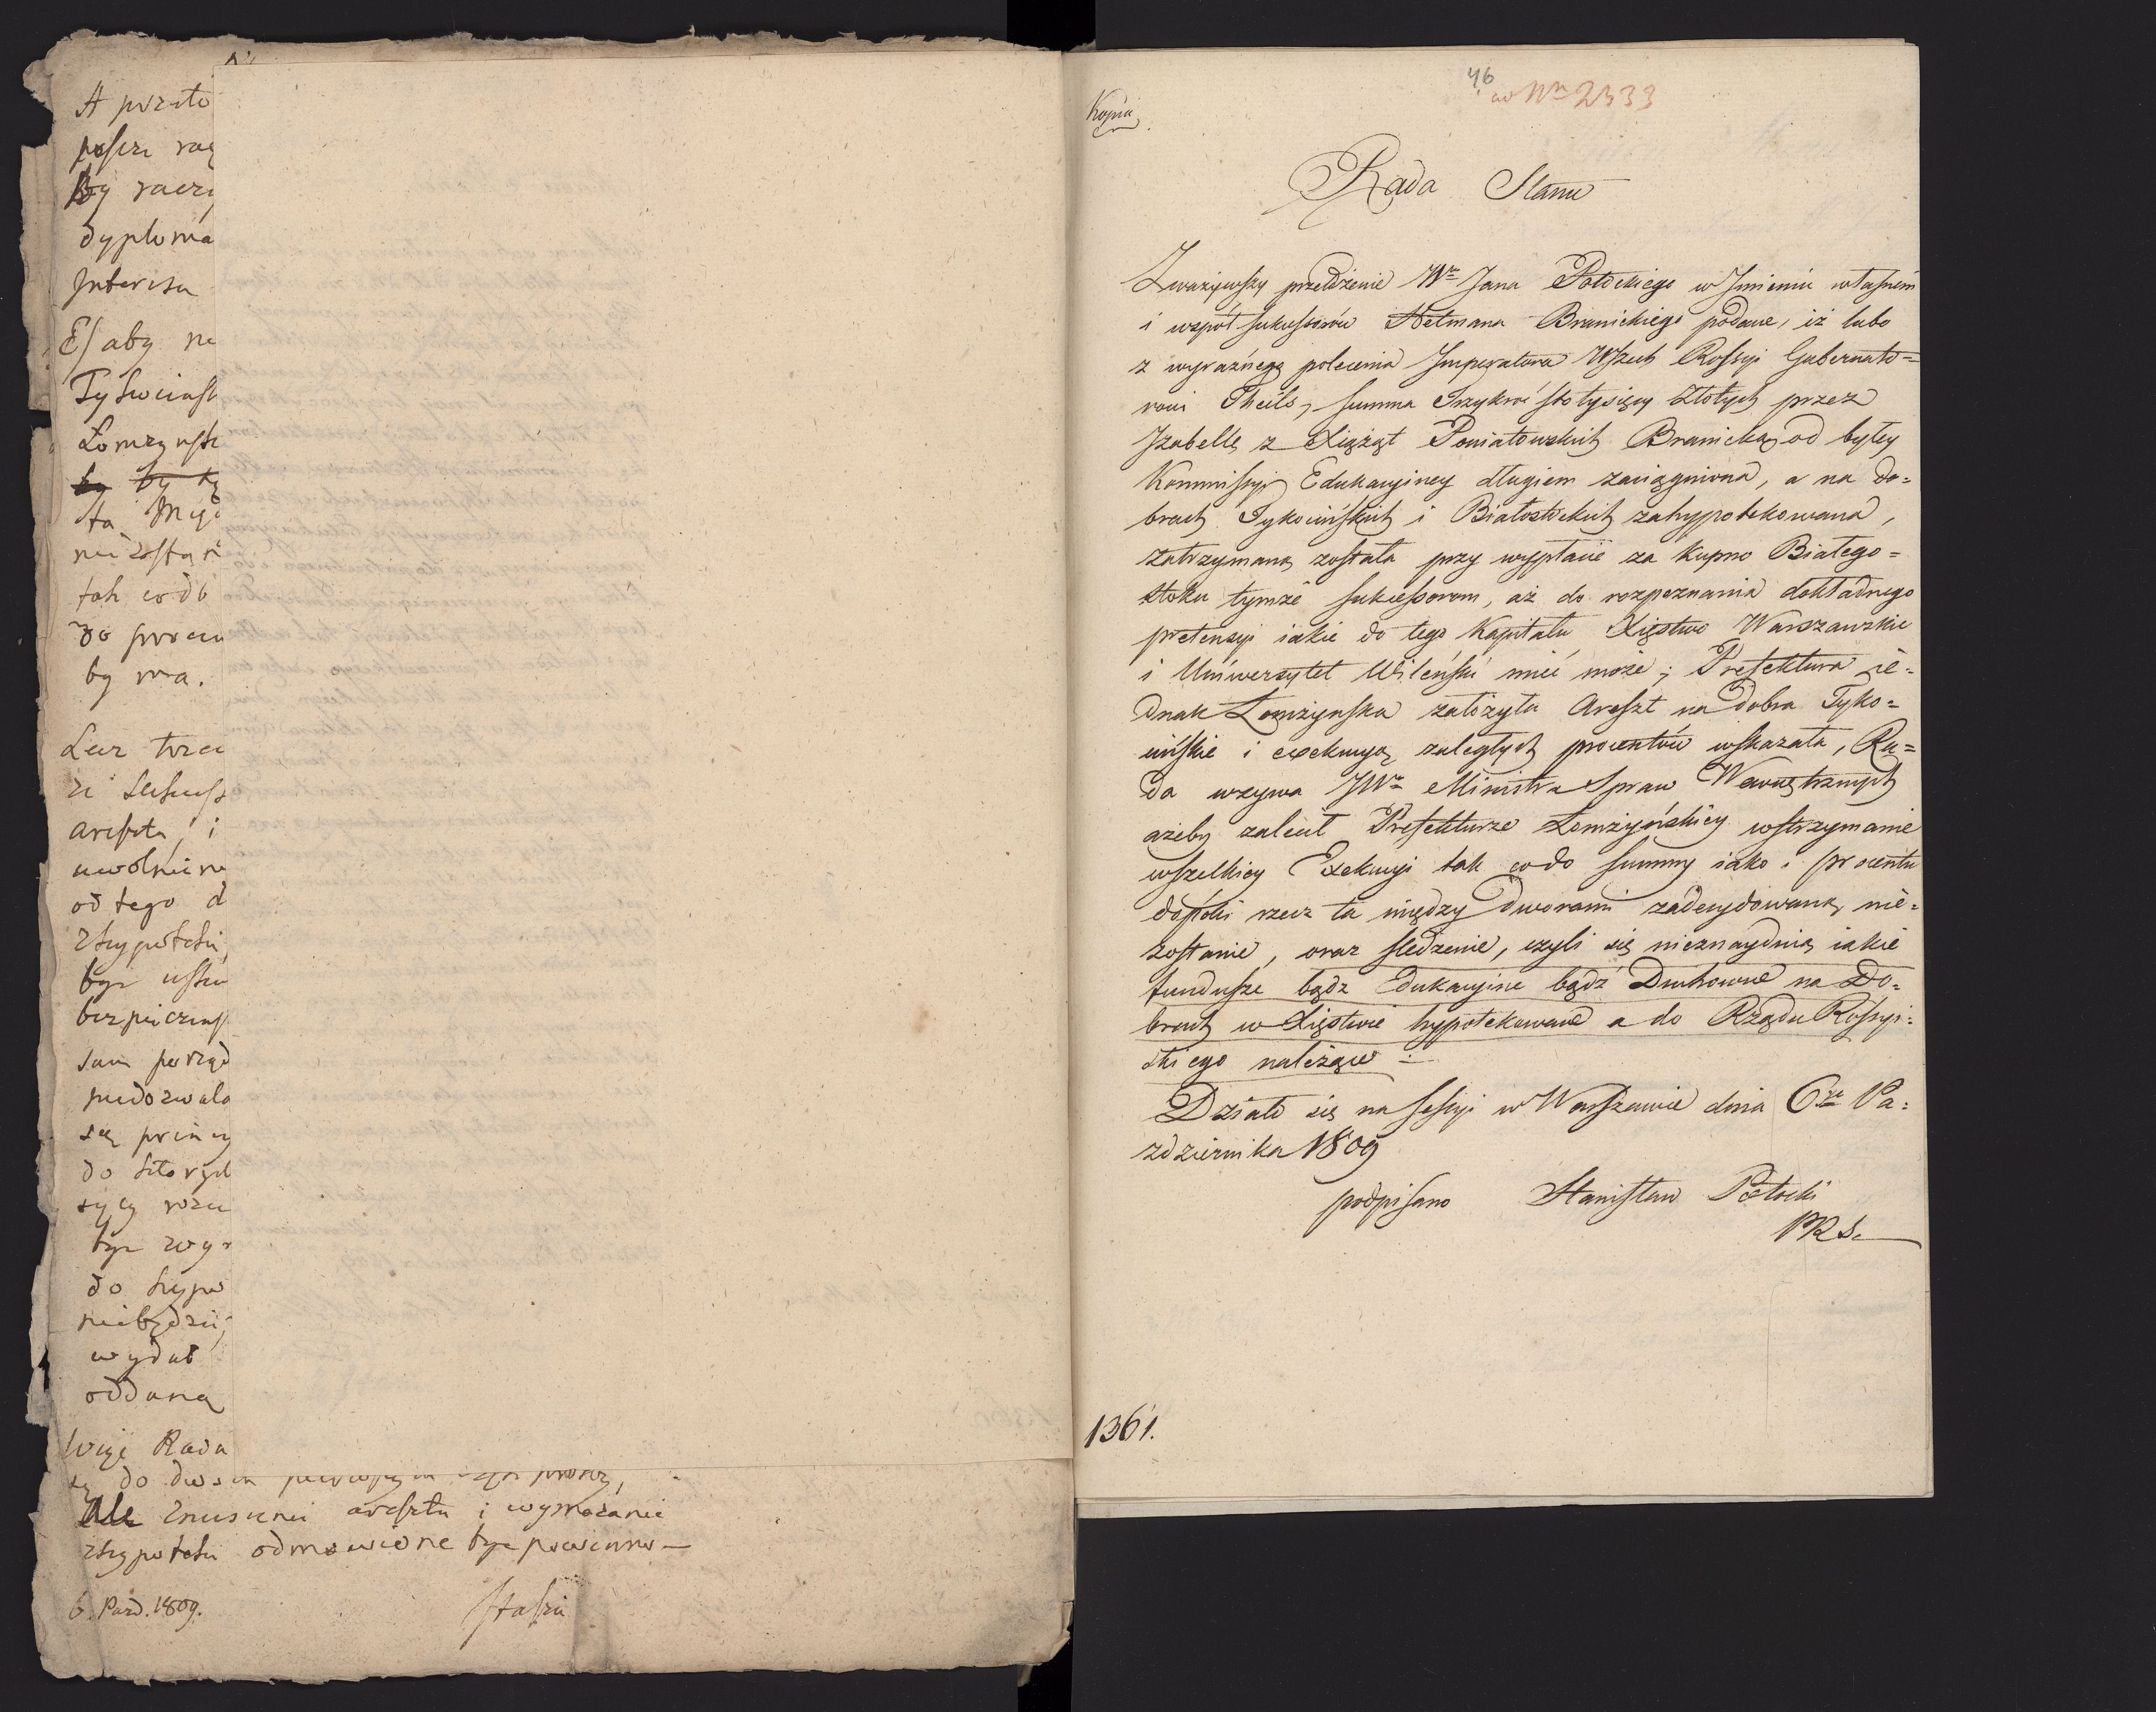 A przeto
By racz
dyploma
Interesu
E/ aby
ta
tak co do
by ma.
aresztu, i
od tego
wydać
oddana
więc Rada
Ale zniesienie aresztu i wymazanie
z hypoteki odmowione być powinno —
6. Pazd. 1809.
Staszic
46
ad Nrm 2333
Kopia
Rada Stanu
Zważywszy przełożenie Wo Jana Potockiego w Jmieniu własnem
i współ sukcessorów Hetmana Branickiego podane, iż lubo
z wyraźnego polecenia Jmperatora Wszech Rossyi Gubernato=
rowi Theils, summa Trzykroć sto tysięcy Złotych przez
Jzabellę z Xiążąt Poniatowskich Branicką od byłey
Kommissyi Edukacyiney długiem zaciągniona, a na do=
brach Tykocińskich i Białostockich zahypotekowana,
zatrzymaną została przy wypłacie za kupno Białego=
stoku tymże sukcessorom, aż do rozpoznania dokładnego
pretensyi iakie do tego Kapitału Xięstwo Warszawskie
i Uniwersytet Wileński mieć może; Prefektura ie=
dnak Łomżyńska założyła Areszt na Dobra Tyko=
cińskie i exekucyą zaległych procentów wskazała, Ra=
da wzywa JWo Ministra Spraw Wewnętrznych
ażeby zalecił Prefekturze Łomżyńskiey wstrzymanie
wszelkiey Exekucyi tak co do summy iako i procentu
dopóki rzecz ta między Dworami zadecydowaną nie=
zostanie, oraz sledzenie, czyli się nieznayduią iakie
fundusze bądz Edukacyine bądź Duchowne na Do=
brach w Xięstwie hypotekowane a do Rządu Rossyi=
skiego należące =
Działo się na Sessyi w Warszawie dnia 6go Pa=
zdziernika 1809
podpisano Stanisław Potocki
PRS.
1361.